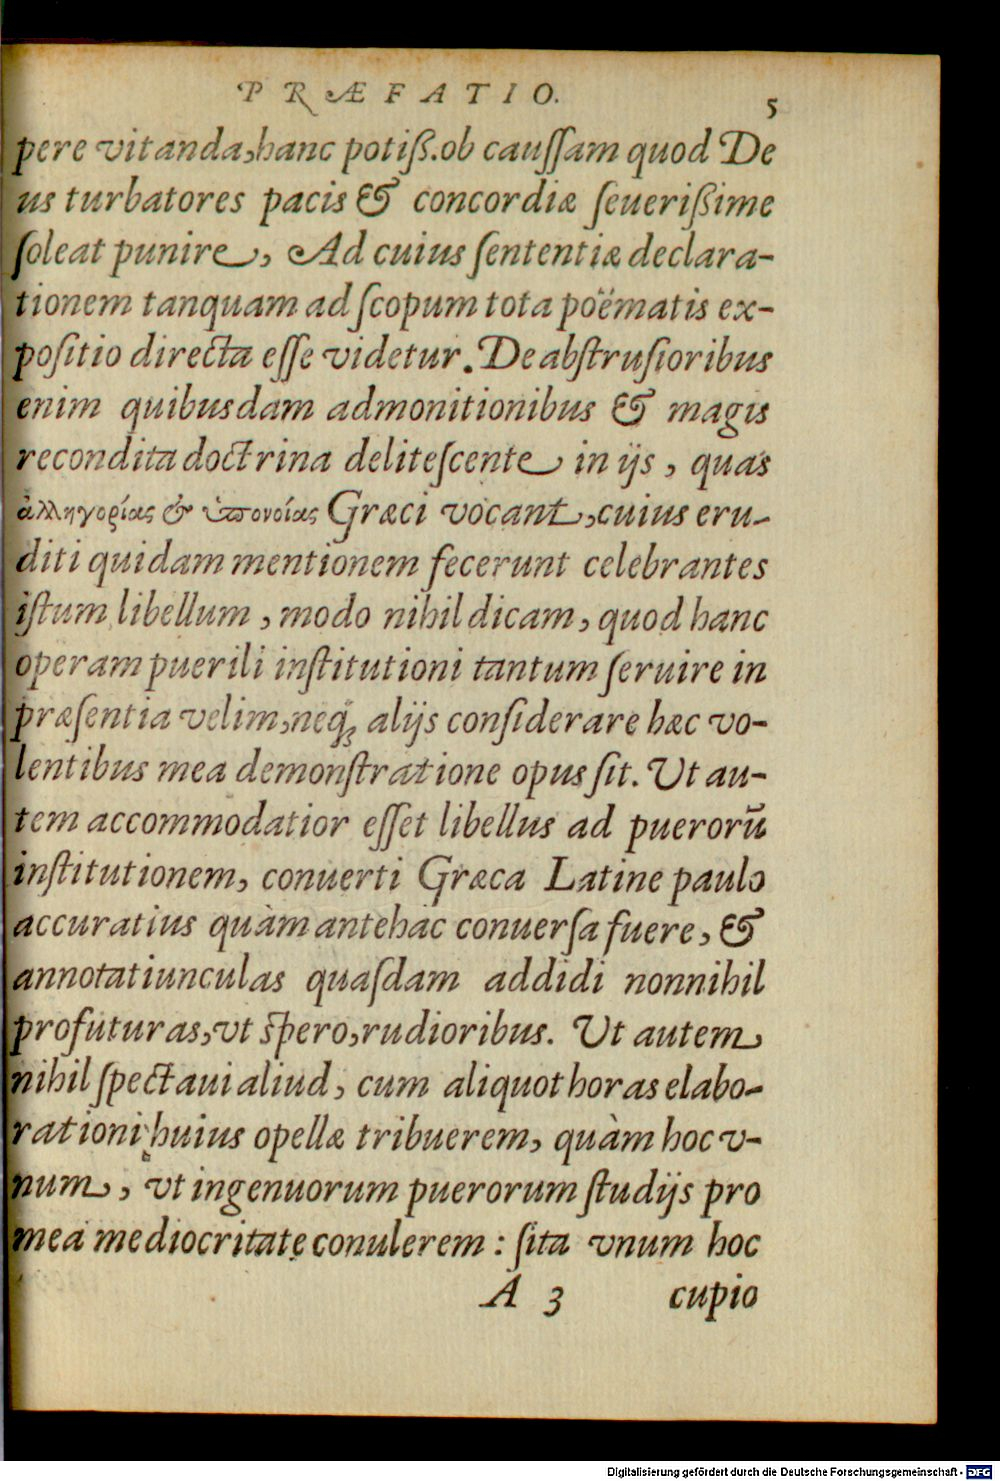 PRÆFATIO. 5
pere vitanda, hanc potiß. ob cauſſam quod De
us turbatores pacis & concordiæ ſeuerißime
ſoleat punire, Ad cuius ſententiæ declara-
tionem tanquam ad ſcopum tota poëmatis ex-
poſitio directa eſſe videtur. De abſtruſioribus
enim quibusdam admonitionibus & magis
recondita doctrina deliteſcente in ijs, quas
ἀλληγορίας & ὑπονοίας Græci vocant, cuius eru-
diti quidam mentionem fecerunt celebrantes
iſtum libellum, modo nihil dicam, quod hanc
operam puerili inſtitutioni tantum ſeruire in
præſentia velim, neq́ꝫ alijs conſiderare hæc vo-
lentibus mea demonſtratione opus ſit. Ut au-
tem accommodatior eſſet libellus ad puerorū
inſtitutionem, conuerti Græca Latine paulo
accuratius quàm antehac conuerſa fuere, &
annotatiunculas quaſdam addidi nonnihil
profuturas, vt ſpero, rudioribus. Ut autem
nihil ſpectaui aliud, cum aliquot horas elabo-
rationi huius opellæ tribuerem, quàm hoc v-
num, vt ingenuorum puerorum ſtudijs pro
mea mediocritate conulerem: ſita vnum hoc
A 3 cupio
Digitalisierung gefördert durch die Deutsche Forschungsgemeinschaft - DFG